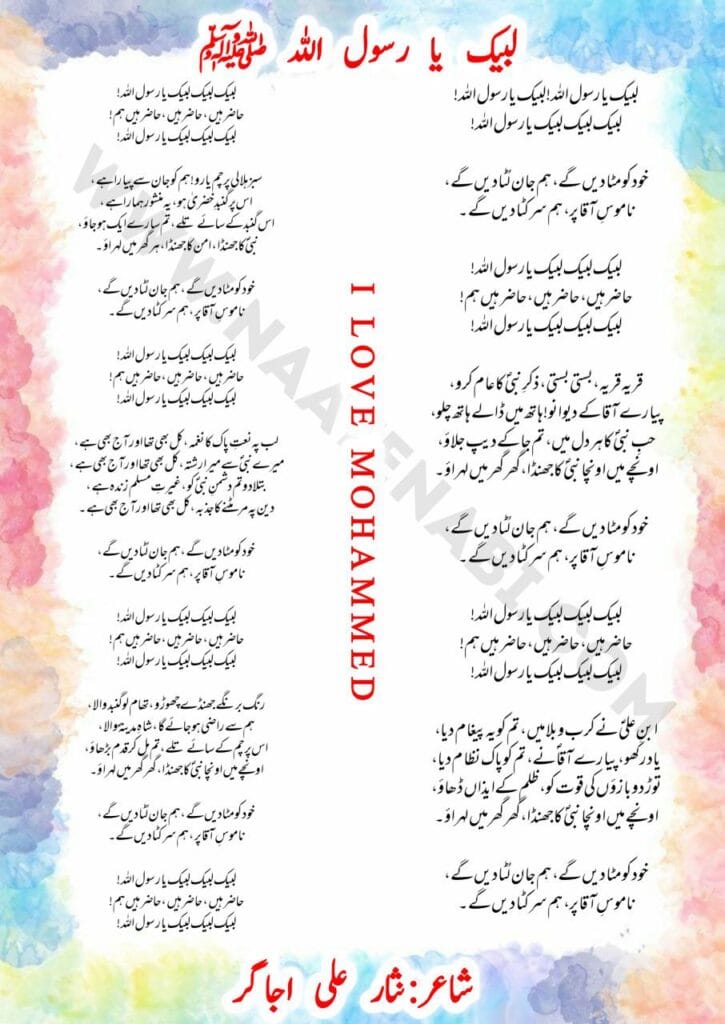 لبیک یا رسول اللہ ﷺ
لبیک یا رسول اللہ! لبیک یا رسول اللہ!
لبیک لبیک لبیک یا رسول اللہ!
خود کو مٹا دیں گے، ہم جان لٹا دیں گے،
ناموسِ آقا پر، ہم سر کٹا دیں گے۔
لبیک لبیک لبیک یا رسول اللہ!
حاضر ہیں، حاضر ہیں، حاضر ہیں ہم!
لبیک لبیک لبیک یا رسول اللہ!
قریہ قریہ، بستی بستی، ذکرِ نبیؐ کا عام کرو،
پیارے آقا کے دیوانو! ہاتھ میں ڈالے ہاتھ چلو،
حب نبیؐ کا ہر دل میں، تم جا کے دیپ جلاؤ،
اونچے میں اونچا نبیؐ کا جھنڈا، گھر گھر میں لہراؤ۔
خود کو مٹا دیں گے، ہم جان لٹا دیں گے،
ناموسِ آقا پر، ہم سر کٹا دیں گے۔
لبیک لبیک لبیک یا رسول اللہ!
حاضر ہیں، حاضر ہیں، حاضر ہیں ہم!
لبیک لبیک لبیک یا رسول اللہ!
ابنِ علیؓ نے کرب و بلا میں، تم کو یہ پیغام دیا،
یاد رکھو، پیارے آقاؐ نے، تم کو پاک نظام دیا،
توڑ دو بازؤں کی قوت کو، ظلم کے ایذاں ڈھاؤ،
اونچے میں اونچا نبیؐ کا جھنڈا، گھر گھر میں لہراؤ۔
خود کو مٹا دیں گے، ہم جان لٹا دیں گے،
ناموسِ آقا پر، ہم سر کٹا دیں گے۔
لبیک لبیک لبیک یا رسول اللہ!
حاضر ہیں، حاضر ہیں، حاضر ہیں ہم!
لبیک لبیک لبیک یا رسول اللہ!
سبز ہلالی پرچم یارو! ہم کو جان سے پیارا ہے،
اس پر گنبد خضریٰ ہو، یہ منشور ہمارا ہے،
اس گنبد کے سائے تلے، تم سارے ایک ہو جاؤ،
نبیؐ کا جھنڈا، امن کا جھنڈا، ہر گھر میں لہراؤ۔
خود کو مٹا دیں گے، ہم جان لٹا دیں گے،
ناموسِ آقا پر، ہم سر کٹا دیں گے۔
لبیک لبیک لبیک یا رسول اللہ!
حاضر ہیں، حاضر ہیں، حاضر ہیں ہم!
لبیک لبیک لبیک یا رسول اللہ!
لب پہ نعتِ پاک کا نغمہ، کل بھی تھا اور آج بھی ہے،
میرے نبیؐ سے میرا رشتہ، کل بھی تھا اور آج بھی ہے،
بتلا دو تم دشمنِ نبیؐ کو، غیرتِ مسلم زندہ ہے،
دین پہ مر مٹنے کا جذبہ، کل بھی تھا اور آج بھی ہے۔
خود کو مٹا دیں گے، ہم جان لٹا دیں گے،
ناموسِ آقا پر، ہم سر کٹا دیں گے۔
لبیک لبیک لبیک یا رسول اللہ!
حاضر ہیں، حاضر ہیں، حاضر ہیں ہم!
لبیک لبیک لبیک یا رسول اللہ!
رنگ برنگے جھنڈے چھوڑو، تھام لو گنبد والا،
ہم سے راضی ہو جائے گا، شاہِ مدینہؐ والا،
اس پرچم کے سائے تلے، تم مل کر قدم بڑھاؤ،
اونچے میں اونچا نبیؐ کا جھنڈا، گھر گھر میں لہراؤ۔
خود کو مٹا دیں گے، ہم جان لٹا دیں گے،
ناموسِ آقا پر، ہم سر کٹا دیں گے۔
لبیک لبیک لبیک یا رسول اللہ!
حاضر ہیں، حاضر ہیں، حاضر ہیں ہم!
لبیک لبیک لبیک یا رسول اللہ!
I LOVE MOHAMMED
شاعر: نثار علی اجاگر